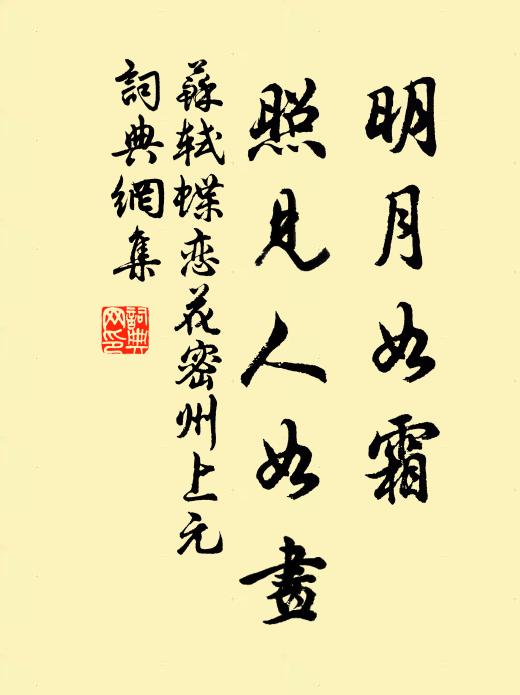 明月如霜
照見人如畫
蘇軾蝶恋花密州上元
詞典網集
詞典
网印